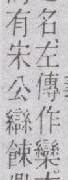 之名左傳作欒
有宋公䜌餗